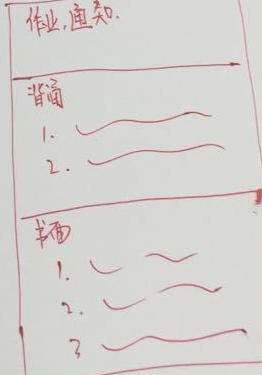 作业,通知.
背诵
1.
2.
书面
1.
2.
3